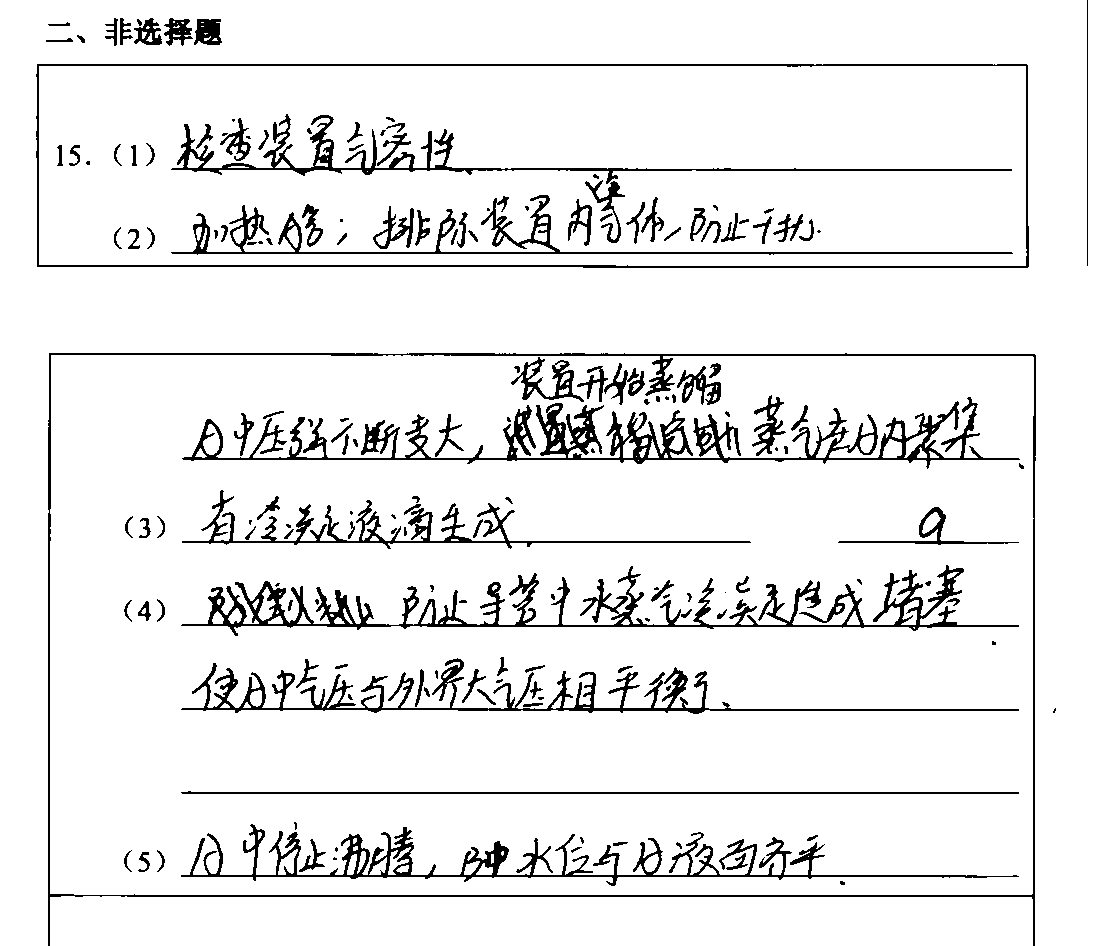 二、非选择题
15.（1）检查装置气密性.
（2）加热A管；排除装置内气体，防止干扰.
装置开始蒸馏
A中压强不断变大，蒸气在A内聚集.
（3）有冷凝液滴生成. a
（4）防止导管中水蒸气冷凝造成堵塞.
使A中气压与外界大气压相平衡.
（5）A中停止沸腾，B中水位与A液面齐平.